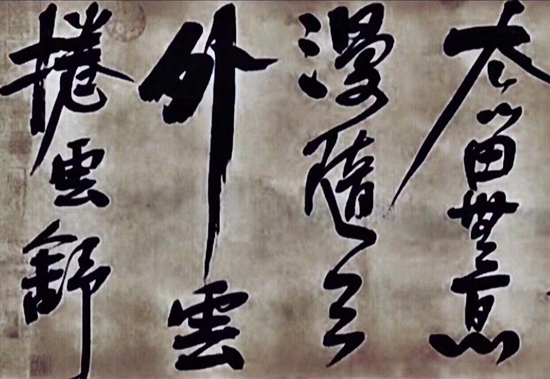 去留無意
漫隨天
外雲
捲雲舒